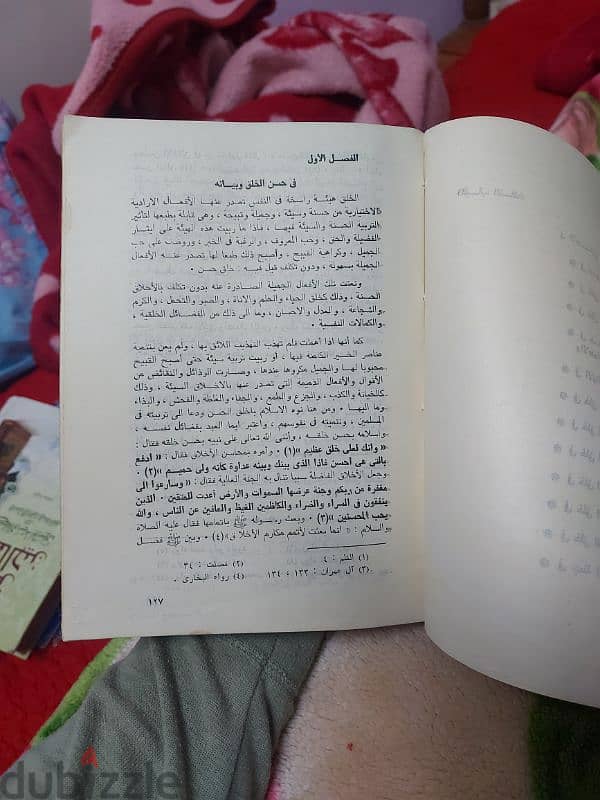 الفصل الأول
فى حسن الخلق وبيانه
الخلق هيئة راسخة فى النفس تصدر عنها الأفعال الارادية
الاختيارية من حسنة وسيئة ، وجميلة وقبيحة ، وهى قابلة بطبعها لتأثير
التربية الحسنة والسيئة فيها ، فاذا ما ربيت هذه الهيئة على ايثار
الفضيلة والحق ، وحب المعروف ، والرغبة فى الخير ، وروضت على حب
الجميل ، وكراهية القبيح ، وأصبح ذلك طبعا لها تصدر عنه الأفعال
الجميلة بسهولة ، ودون تكلف قيل فيه : خلق حسن .
ونعتت تلك الأفعال الجميلة الصادرة عنه بدون تكلف بالأخلاق
الحسنة ، وذلك كخلق الحياء والحلم والاناة ، والصبر والتحمل ، والكرم
والشجاعة ، والعدل والاحسان ، وما الى ذلك من الفضائل الخلقية ،
والكمالات النفسية .
كما أنها اذا أهملت فلم تهذب التهذيب اللائق بها ، ولم يعن بتنمية
عناصر الخير الكامنة فيها ، أو ربيت تربية سيئة حتى أصبح القبيح
محبوبا لها والجميل مكروها عندها ، وصارت الرذائل والنقائص من
الأقوال والأفعال الذميمة التى تصدر عنها بالأخلاق السيئة ، وذلك
كالخيانة والكذب ، والجزع والطمع ، والجفاء والغلظة والفحش ، والبذاء
وما اليها . ومن هنا نوه الاسلام بالخلق الحسن ودعا الى تربيته فى
المسلمين ، وتنميته فى نفوسهم ، واعتبر ايما العبد بفضائل نفسه ،
واسلامه بحسن خلقه ، وأثنى الله تعالى على نبيه بحسن خلقه فقال :
« وانك لعلى خلق عظيم »(١) . وأمره بمحاسن الأخلاق فقال : « ادفع
بالتى هى أحسن فاذا الذى بينك وبينه عداوة كأنه ولى حميم »(٢) .
وجعل الأخلاق الفاضلة سببا تنال به الجنة العالية فقال : « وسارعوا الى
مغفرة من ربكم وجنة عرضها السموات والأرض أعدت للمتقين . الذين
ينفقون فى السراء والضراء والكاظمين الغيظ والعافين عن الناس ، والله
يحب المحسنين »(٣) . وبعث رسوله ﷺ باتمامها فقال عليه الصلاة
والسلام : « انما بعثت لأتمم مكارم الأخلاق »(٤) . وبين ﷺ فضل
(١) القلم : ٤ (٢) فصلت : ٣٤
(٣) آل عمران : ١٣٣ ، ١٣٤ (٤) رواه البخارى .
١٢٧
dubizzle